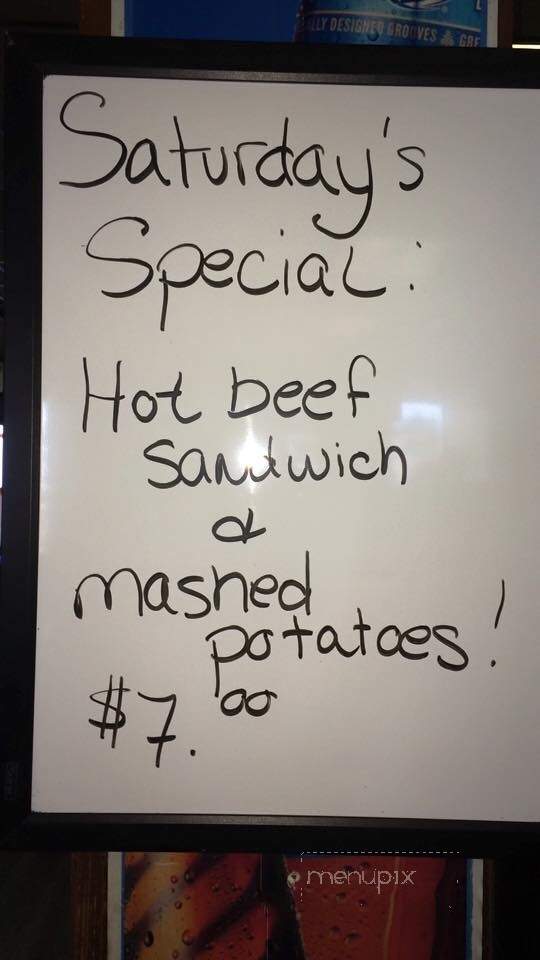 LLY DESIGNED GROOVES GRE
Saturday's
Special:
Hot beef
Sandwich
&
mashed
potatoes!
$7.00
menupix